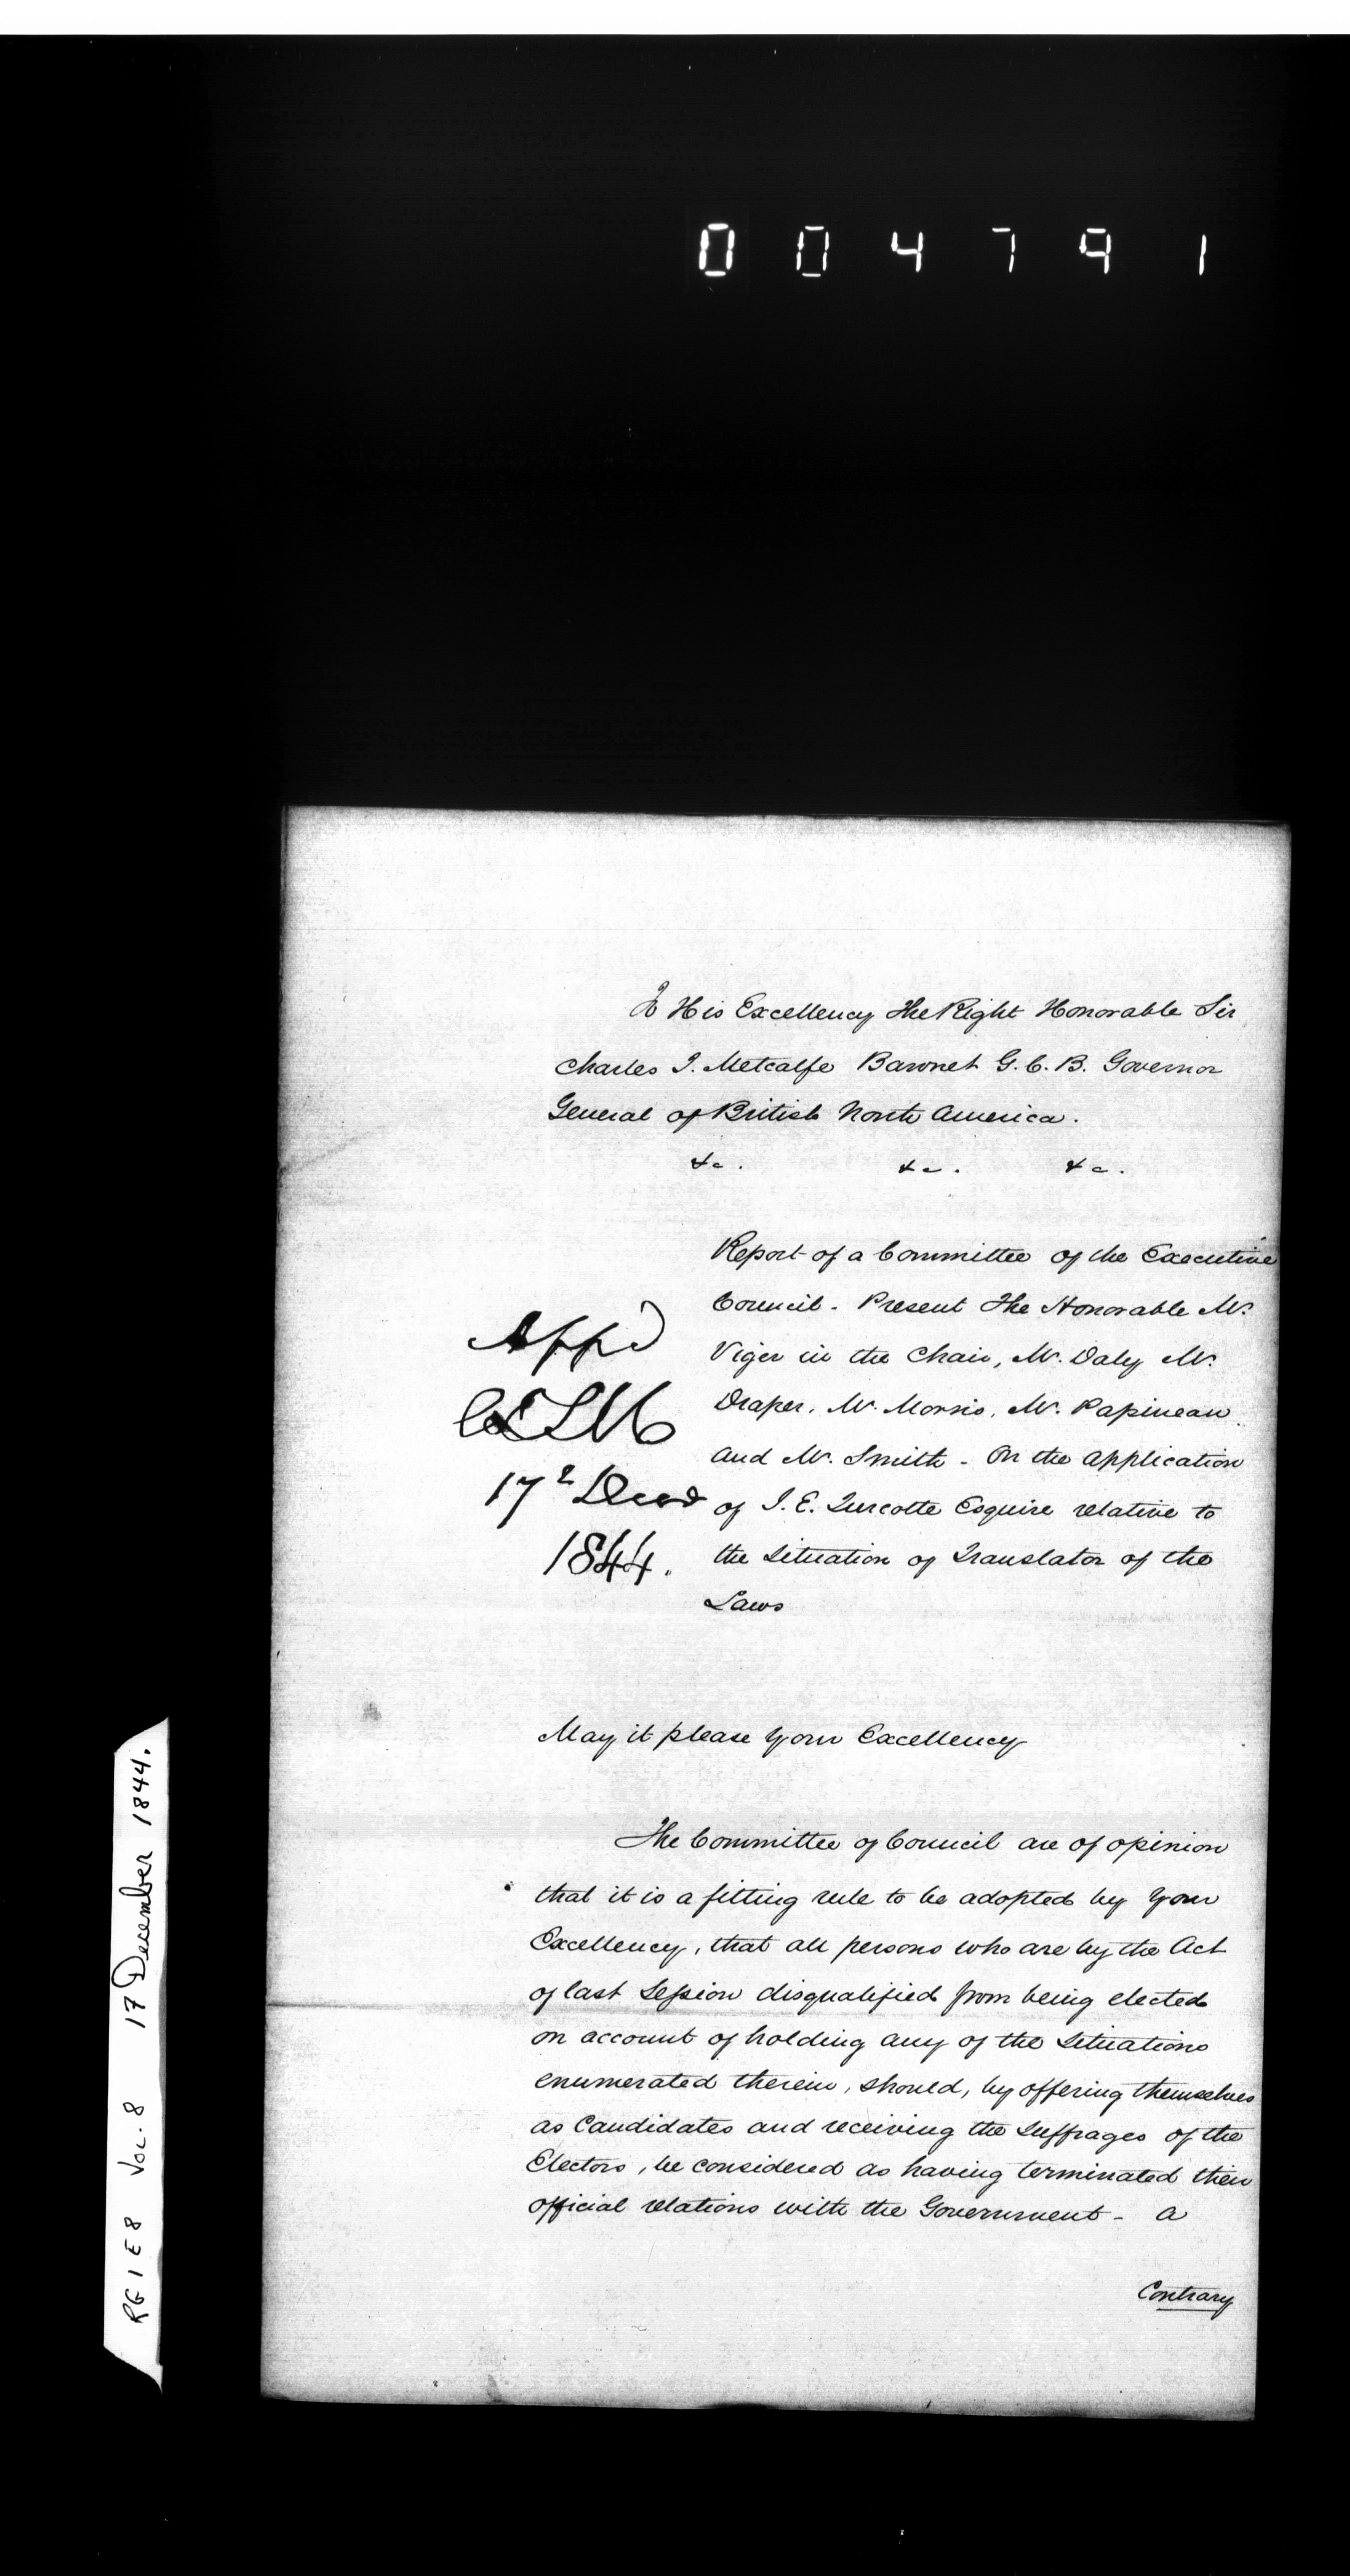 004791
To His Excellency The Right Honorable Sir
Charles T. Metcalfe Baronet G.C.B. Governor
General of British North America.
&c. &c. &c.
Report of a Committee of the Executive
Council - Present The Honorable Mr.
Viger in the Chair, Mr. Daly Mr.
Draper, Mr. Morris, Mr. Papineau
and Mr. Smith - On the application
of J. E. Turcotte Esquire relative to
the Situation of Translator of the
Laws
Appd
17th Decr
1844.
May it please Your Excellency
The Committee of Council are of opinion
that it is a fitting rule to be adopted by Your
Excellency, that all persons who are by the Act
of last Session disqualified from being elected
on account of holding any of the Situations
enumerated therein, should, by offering themselves
as Candidates and receiving the Suffrages of the
Electors, be considered as having terminated their
official relations with the Government - A
Contrary
RG 1 E 8 Vol. 8 17 December 1844.